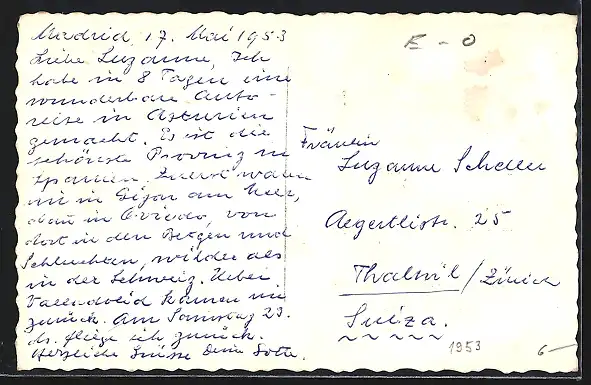 Madrid, 17. Mai 1953
Liebe Suzanne, Ich
habe in 8 Tagen eine
wunderbare Auto-
reise in Asturien
gemacht. Es ist die
schönste Provinz in
Spanien. Zuerst waren
wir in Gijon am Meer,
dann in Oviedo, von
dort in den Bergen und
Schluchten, wilder als
in der Schweiz. Ueber
Valladolid kamen wir
zurück. Am Samstag 23.
ds. fliege ich zurück.
Herzliche Grüsse Deine Lotte.
E - O
Fräulein
Suzanne
Aegertlistr. 25
Thalwil / Zürich
Suiza.
1953
6 —